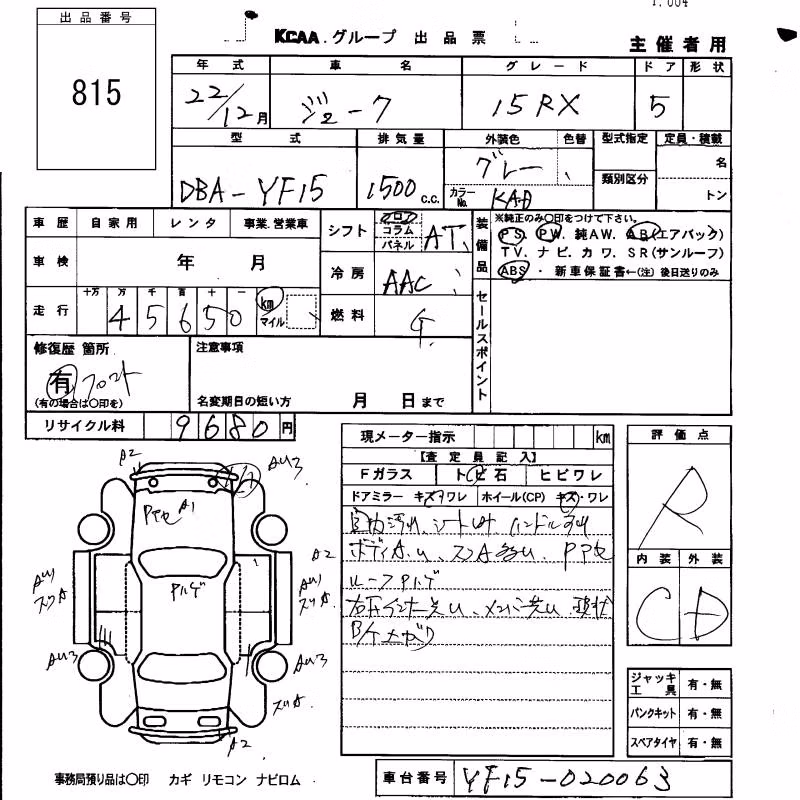 出品番号
815
KCAA.グループ 出品票
主催者用
年式 車名 グレード ドア 形状
22/12月 ジューク 15RX 5
型式 排気量 外装色 色替 型式指定 定員・積載
DBA-YF15 1500 c.c. グレー 類別区分 名
カラーNo. KAD トン
車歴 自家用 レンタ 事業.営業車
シフト フロア コラム パネル AT
装備品
※純正のみ〇印をつけて下さい。
PS. PW. 純AW. AB(エアバック)
TV. ナビ. カワ. SR(サンルーフ)
ABS ・ 新車保証書←(注) 後日送りのみ
車検 年 月
冷房 AAC
走行 十万 万 千 百 十 一
45650 km マイル
燃料 G
セールスポイント
修復歴 箇所
有 フロント
(有の場合は〇印を)
注意事項
名変期日の短い方 月 日まで
リサイクル料 9680円
現メーター指示 km
評価点
R
【査定員記入】
Fガラス トビ石 ヒビワレ
ドアミラー キズワレ ホイール(CP) キズ・ワレ
ボディA.U、スリA多い、PPセ
ルーフPハゲ
内装 外装
C D
A2 AU3
A1
Pハゲ
AU1 A2
スリA AU1
スリA
AU3 AU3
スリA
A2
ジャッキ工具 有・無
パンクキット 有・無
スペアタイヤ 有・無
事務局預り品は〇印 カギ リモコン ナビロム
車台番号 YF15-020063